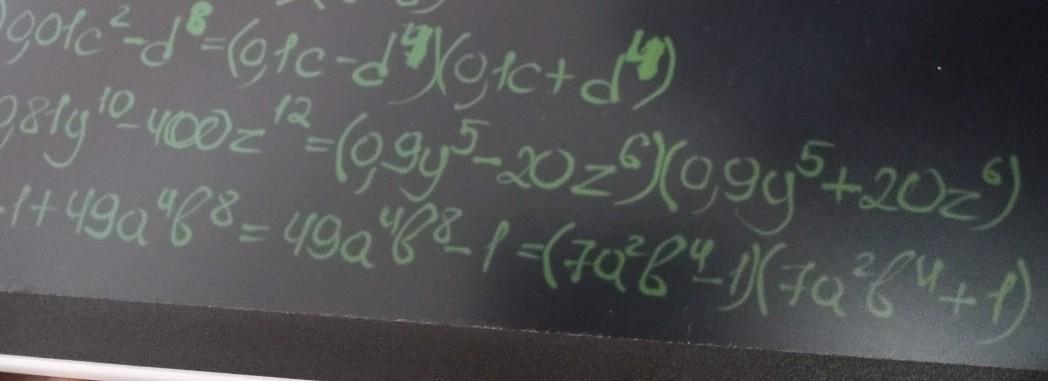 0,01c²-d⁸=(0,1c-d⁴)(0,1c+d⁴)
0,81y¹⁰-400z¹²=(0,9y⁵-20z⁶)(0,9y⁵+20z⁶)
-1+49a⁴b⁸=49a⁴b⁸-1=(7a²b⁴-1)(7a²b⁴+1)